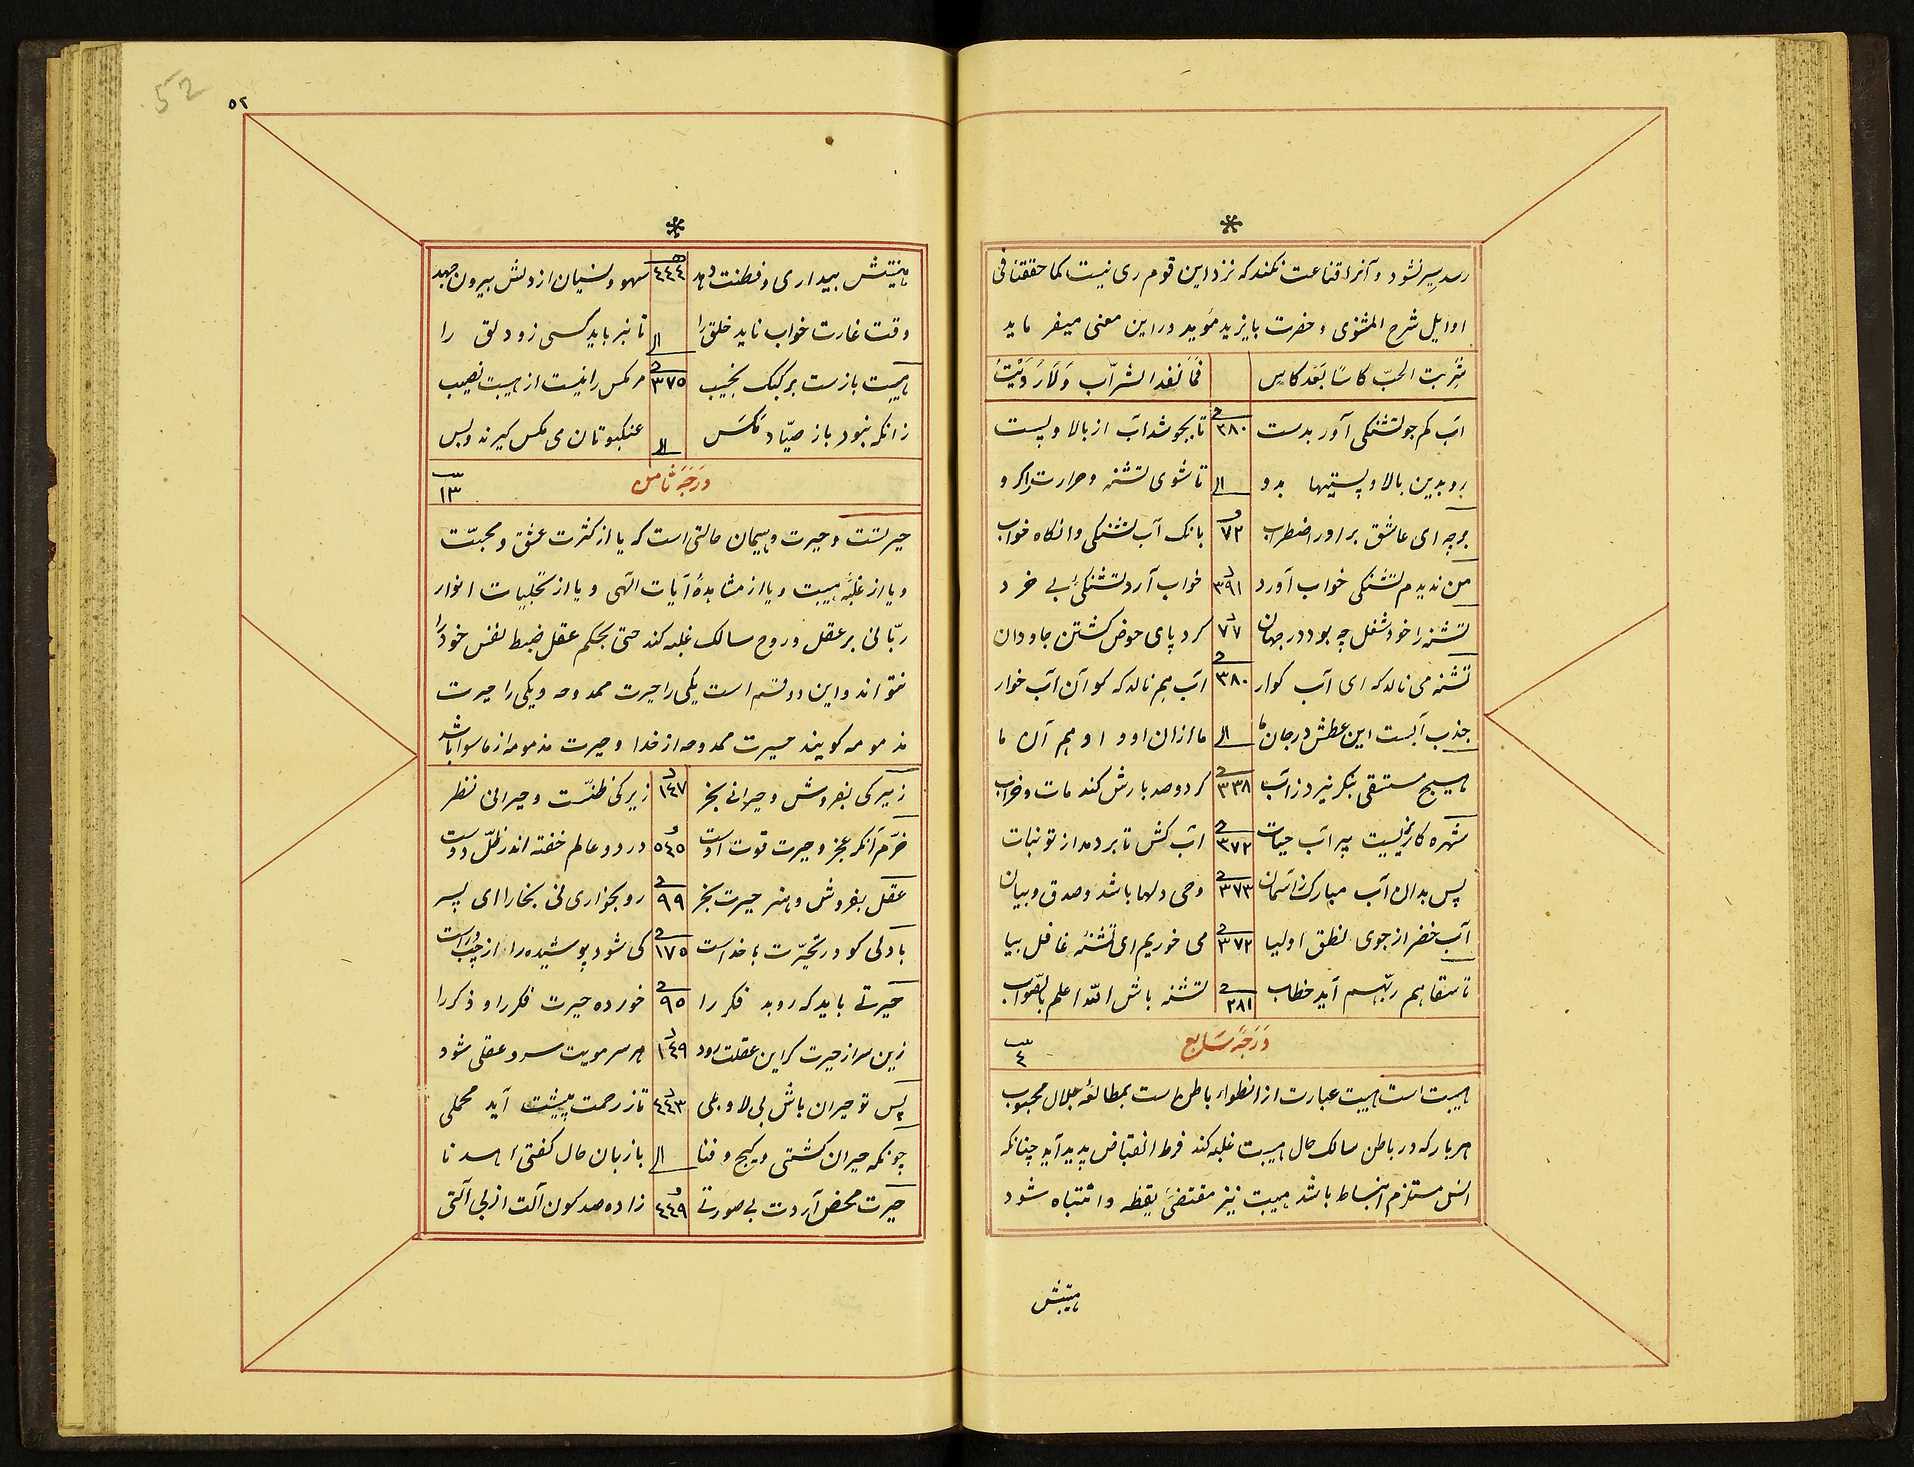 رسد سیر نشود و آنرا قناعت نکنند که نزد این قوم ری نیست کما حققنا فی
اوایل شرح المثنوی و حضرت بایزید مؤید در این معنی میفرماید
شربت الحبّ کاسًا بعد کاس فما نفد الشراب ولا رویت
آب کم جو تشنگی آور بدست ٣٨٠ تا بجوشد آب از بالا و پست
رو بدین بالا و پستیها بدو تا شوی تشنه و حرارت را گرو
برجه ای عاشق برآور اضطراب ٧٢ بانک آب تشنگی وانگاه خواب
من ندیدم تشنگی خواب آورد ٣٩١ خواب آرد تشنگیٔ بی خرد
تشنه را خود شغل چه بود در جهان ٧٧ گرد پای حوض گشتن جاودان
تشنه می نالد که ای آب گوار ٣٨٠ آب هم نالد که کو آن آب خوار
جذب آبست این عطش در جان ما ما ازان او و او هم آن ما
هیچ مستسقی بنگریزد ز آب ٣٣٨ گر دو صد بارش کند مات و خراب
شهره کاریزیست پر آب حیات ٣٧٢ آب کش تا بر دمد از تو نبات
پس بدان آب مبارک ز آسمان ٣٧٣ وحی دلها باشد و صدق و بیان
آب خضر از جوی نطق اولیا ٣٧٢ می خوریم ای تشنهٔ غافل بیا
تا سقاهم ربّهم آید خطاب ٢٨١ تشنه باش الله اعلم بالصّواب
درجهٔ سابع ٤
هیبت است هیبت عبارت از انطواء باطن است بمطالعهٔ جلال محبوب
هر بار که در باطن سالک حال هیبت غلبه کند فرط انقباض پدید آید چنانکه
انس مستلزم انبساط باشد هیبت نیز مقتضیٔ یقظه و انتباه شود
هیبتش
٥٢
52
هیبتش بیداری و فطنت دهد ٤٤٤ سهو و نسیان از دلش بیرون جهد
وقت غارت خواب ناید خلق را تا نبر باید کسی زو دلق را
هیبت بازست بر کبک نجیب ٣٧٥ مر مکس را نیست از هیبت نصیب
زانکه نبود باز صیّاد مکس عنکبوتان می مکس گیرند و بس
درجهٔ ثامن ١٣
حیرتست و حیرت و هیمان حالتی است که یا از کثرت عشق و محبّت
و یا از غلبهٔ هیبت و یا از مشاهدهٔ آیات الهی و یا از تجلیات انوار
ربّانی بر عقل و روح سالک غلبه کند حتی بحکم عقل ضبط نفس خود را
نتواند و این دو قسم است یکی را حیرت ممدوحه و یکی را حیرت
مذمومه گویند حیرت ممدوحه از خدا و حیرت مذمومه از ماسوا باشد
زیرکی بفروش و حیرانی بخر ١٤٧ زیرکی ظنّست و حیرانی نظر
خرّم آنکه عجز و حیرت قوت اوست ٥٤٥ در دو عالم خفته اندر ظلّ دوست
عقل بفروش و هنر حیرت بخر ٩٩ رو بخواری نی بخارا ای پسر
با دلی کو در تحیّرت با خداست ١٧٥ کی شود پوشیده راز از چپ و راست
حیرتی باید که روبد فکر را ٩٥ خورده حیرت فکر را و ذکر را
زین سر از حیرت گر این عقلت رود ١٤٩ هر سر مویت سر و عقلی شود
پس تو حیران باش بی لا و بلی ٤٤٣ تا ز رحمت پیشت آید محملی
چونکه حیران گشتی و گیج و فنا با زبان حال گفتی اهدنا
حیرت محض آردت بی صورتی ٤٤٩ زاده صد گون آلت از بی آلتی